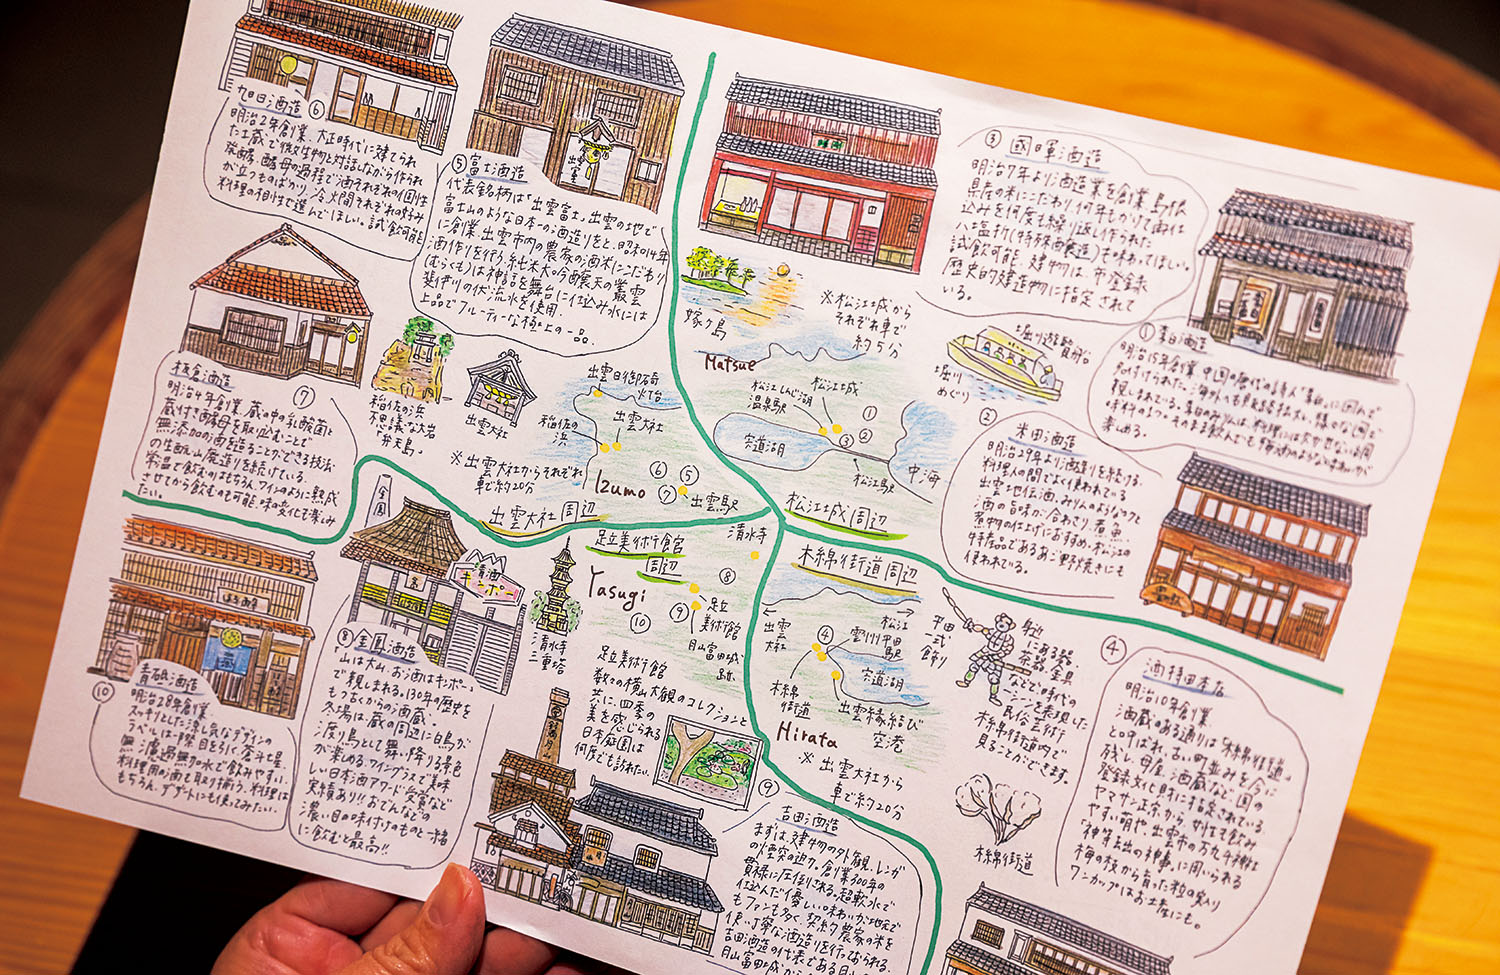 旭日酒造 ⑥
明治2年創業、大正時代に建てられ
た土蔵で微生物と対話しながら作られ
発酵、酵母の過程で酒それぞれの個性
が立つものばかり。冷や燗それぞれの好み
料理の相性で選んでほしい。試飲可能
⑤ 富士酒造
代表銘柄は「出雲富士」出雲の地で
富士山のような日本一の酒造りをと、昭和14年
に創業。出雲市内の農家の酒米にこだわり
酒作りを行う。純米大吟醸天の叢雲
(むらくも)は神話を舞台に仕込み水には
斐伊川の伏流水を使用。
上品でフルーティーな極上の一品。
出雲富士
③ 國暉酒造
明治7年より酒造業を創業。島根
県産の米にこだわり何年もかけて再仕
込みを何度も繰り返し作られた
八塩折(特殊醸造)も味わってほしい。
試飲可能。建物は、市登録
歴史的建造物に指定されて
いる。
① 李白酒造
明治15年創業、中国の唐代の詩人「李白」に因んで
名付けられた。
② 米田酒造
明治29年より酒造りを続ける。
料理人の間でよく使われている
出雲地伝酒。みりんのようなコクと
酒の旨味が合わさり、煮魚、
煮物の仕上げにおすすめ。松江の
特産品であるあご野焼きにも
使われている。
板倉酒造 ⑦
明治4年創業、蔵の中の乳酸菌と
蔵付き酵母を取り込むことで
無添加の酒を造ることができる技法
の生酛、山廃造りを続けている。
常温で飲むのはもちろん、ワインのように熟成
させてから飲むのも可能。味の変化も楽しみ
たい。
稲佐の浜
不思議な大岩
「弁天島」
出雲大社
※出雲大社からそれぞれ
車で約20分
出雲日御碕
灯台
出雲大社
稲佐の
浜
⑥ ⑤
⑦
Izumo
出雲駅
出雲大社周辺
嫁ヶ島
※松江城から
それぞれ車で
約5分
Matsue
松江しんじ湖
温泉駅
松江城
① ②
③
宍道湖
中海
松江駅
松江城周辺
堀川遊覧船
堀川
めぐり
足立美術館
周辺
Yasugi
清水寺
⑧
⑨
⑩
足立
美術館
月山富田城
跡
木綿街道周辺
出雲
大社
松江
④
雲州平田
駅
宍道湖
木綿
街道
出雲縁結び
空港
Hirata
※出雲大社から
車で約20分
平田
一式
飾り
木綿街道内で
見ることができます。
木綿街道
④
酒持田本店
明治10年創業。
酒蔵のある通りは「木綿街道」
と呼ばれ、古い町並みを今に
残し、母屋、酒蔵など、国の
登録文化財に指定されている。
ワンカップはお土産にも。
⑩ 青砥酒造
明治28年創業。
スッキリとした
ラベルは一際目を引く蒼斗七星。
⑧ 金鳳酒造
「山は大山、お酒はキンポー」
で親しまれる。130年歴史を
もつ古くからの酒蔵。
冬場は蔵の周辺に白鳥が
渡り鳥として舞い降りる景色
が楽しめる。ワイングラスで美味
しい日本酒アワード受賞など
実績あり!! おでんなどの
濃い目の味付けのものと一緒
に飲むと最高!!
金鳳
清酒
キンポー
清水寺
三重塔
足立美術館
数々の横山大観のコレクションと
共に、四季の
美を感じられる
日本庭園は
何度でも訪れたい。
⑨
吉田酒造
まずは、建物の外観、レンガ
の煙突の迫力。創業300年の
貫禄に圧倒される。超軟水で
仕込んだ優しい味わいが地元で
もファンも多く、契約農家の米を
使い丁寧な酒造りを行っておられる。
吉田酒造の代表である月山は